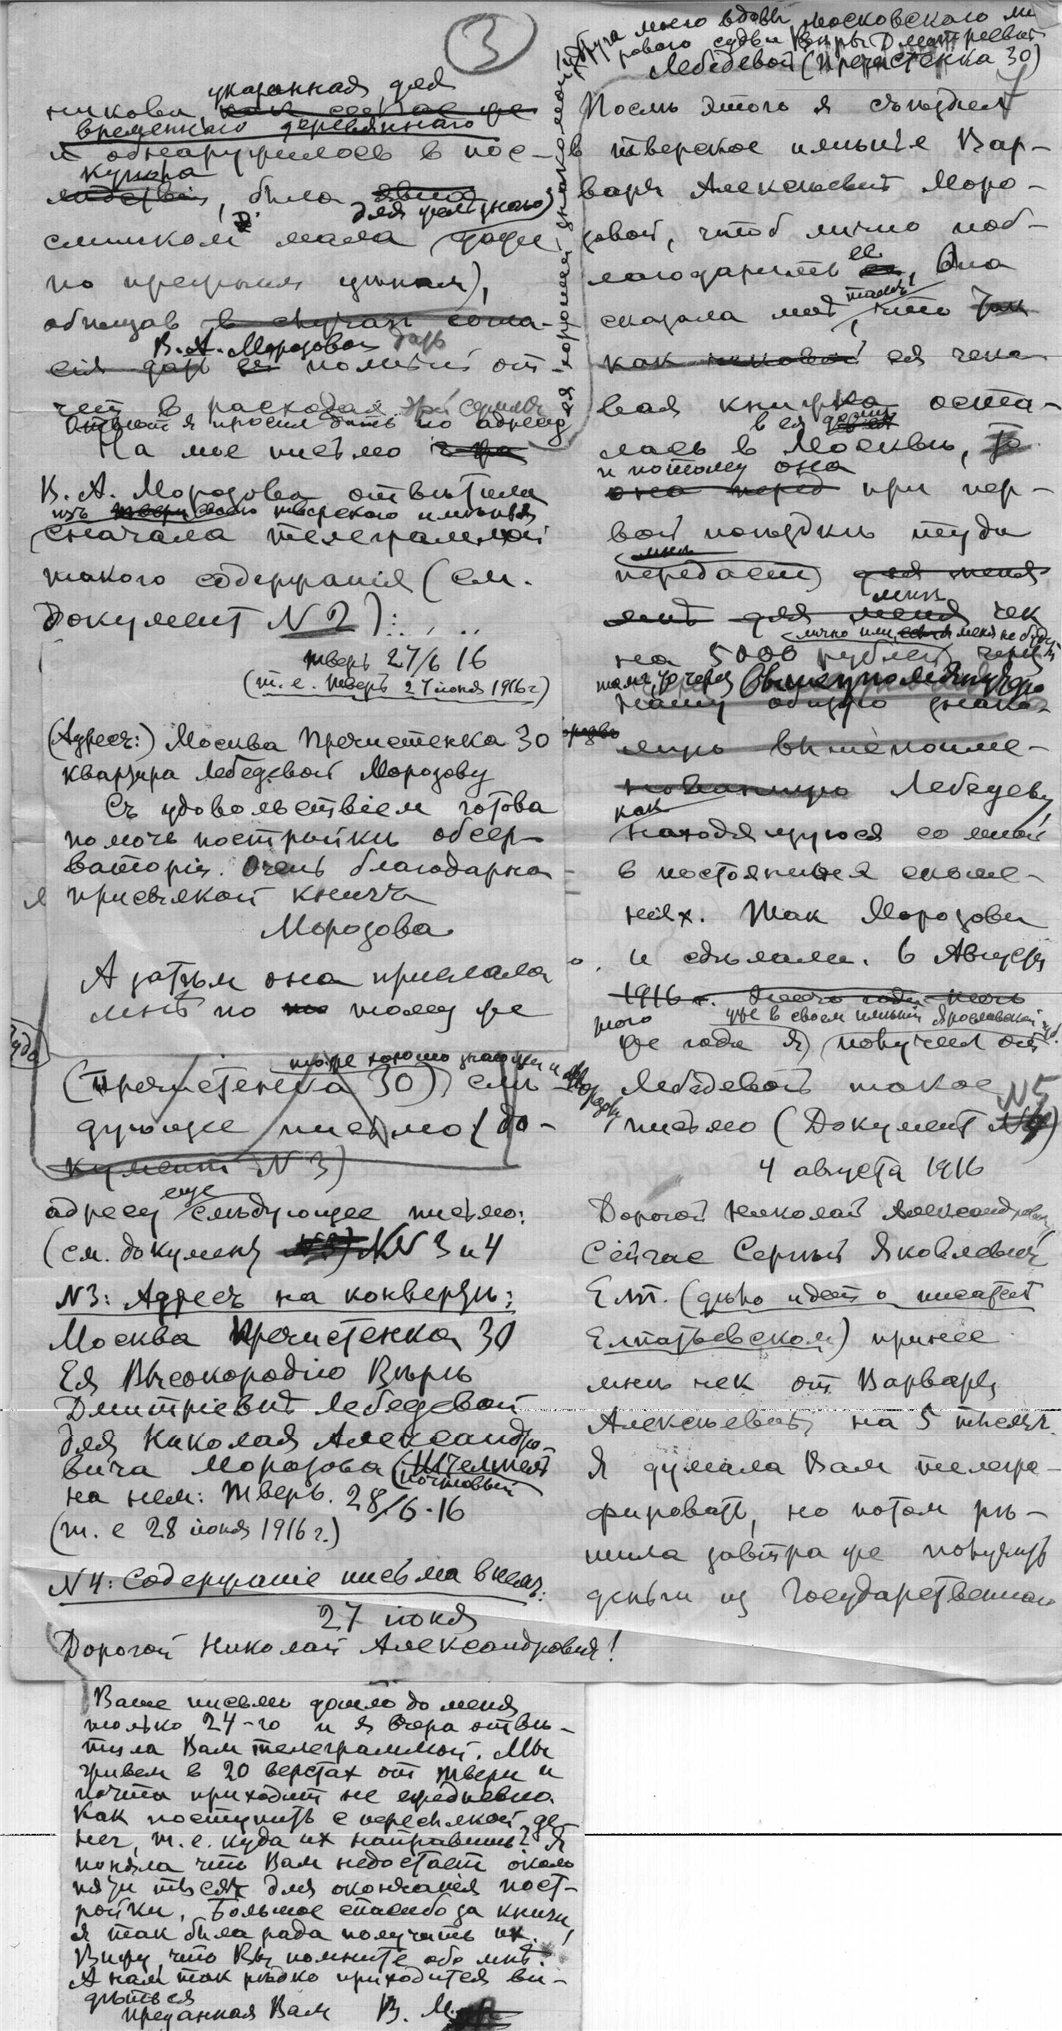 3
указанная для
никова
временнаго деревяннаго
и обнаружилось в пос-
купола
, было
слишком мала даже
по прежним ценам),
обещав
В. А. Морозовой дать
полный от-
чет в расходах
Ответ я просил дать по адресу
На мое письмо
В. А. Морозова ответила
изъ своего тверского именья
сначала телеграммой
такого содержания (см.
Документ N 2):
тверь 27/6 16
(т. е. тверь 27 июня 1916 г)
(Адресъ:) Москва Пречистенка 30
квартира Лебедевой Морозову
Съ удовольствием готова
помочь постройки обсер-
ватории. Очень благодарна
присылкой книги
Морозова
А затем она прислала
мнѣ по тому же
(Пречистенка 30) сле-
дующее письмо (до-
кумент N 3)
адресу еще следующее письмо:
(см. документ NN 3 и 4
N3: Адресъ на конверте:
Москва Пречистенка 30
Ея Высокородию Вере
Дмитриевне Лебедевой
для Николая Александро-
вича Морозова (Штемпель
почтовый
на нем: Тверь. 28/6-16
(т. е 28 июня 1916 г.)
N4: Содержание письма в нем:
27 июня
Дорогой Николай Александрович!
Ваше письмо дошло до меня
только 24-го и я вчера отве-
тила Вам телеграммой. Мы
живем в 20 верстах от Твери и
почта приходит не ежедневно.
Как поступить с пересылкой де-
нег, т. е. куда их направить? Я
поняла что Вам недостает около
пяти тысяч для окончания пост-
ройки. Большое спасибо за книги,
я так была рада получить их.
Вижу, что Вы помните обо мнѣ.
А нам так редко приходится ви-
деться
преданная Вам В. М
друга моего вдовы московского ми-
рового судьи Веры Дмитриевны
Лебедевой (Пречистенка 30)
Послѣ этого я съездил
в тверское именье Вар-
вары Алексеевны Моро-
зовой, чтоб лично поб-
лагодарить ее. Она
сказала мне тамъ, что
как ея чеко-
вая книжка оста-
лась в Москвѣ,
в ея доме
и потому она
при пер-
вой поездки туда
передаст
мнѣ чек
на 5000 рублей
лично или меня не буде
тамъ, то через вышеупомянутую
нашу общую знако-
мую вышепоиме-
нованную Лебедеву,
как
находящуюся со мной
в постоянных сноше-
ниях. Так Морозова
и сделала. В Августе
1916 г.
того
же года я, уже в своем имении Ярославской губ.
получил от
Лебедевой такое
письмо (Документ N 5)
4 августа 1916
Дорогой Николай Александрович,
Сейчас Сергей Яковлевич
Елп. (дело идет о писателе
Елпатьевском) принес
мнѣ чек от Варвары
Алексеевны на 5 тысяч.
Я думала Вам телегра-
фировать, но потом ре-
шила завтра же получить
деньги из Государственного